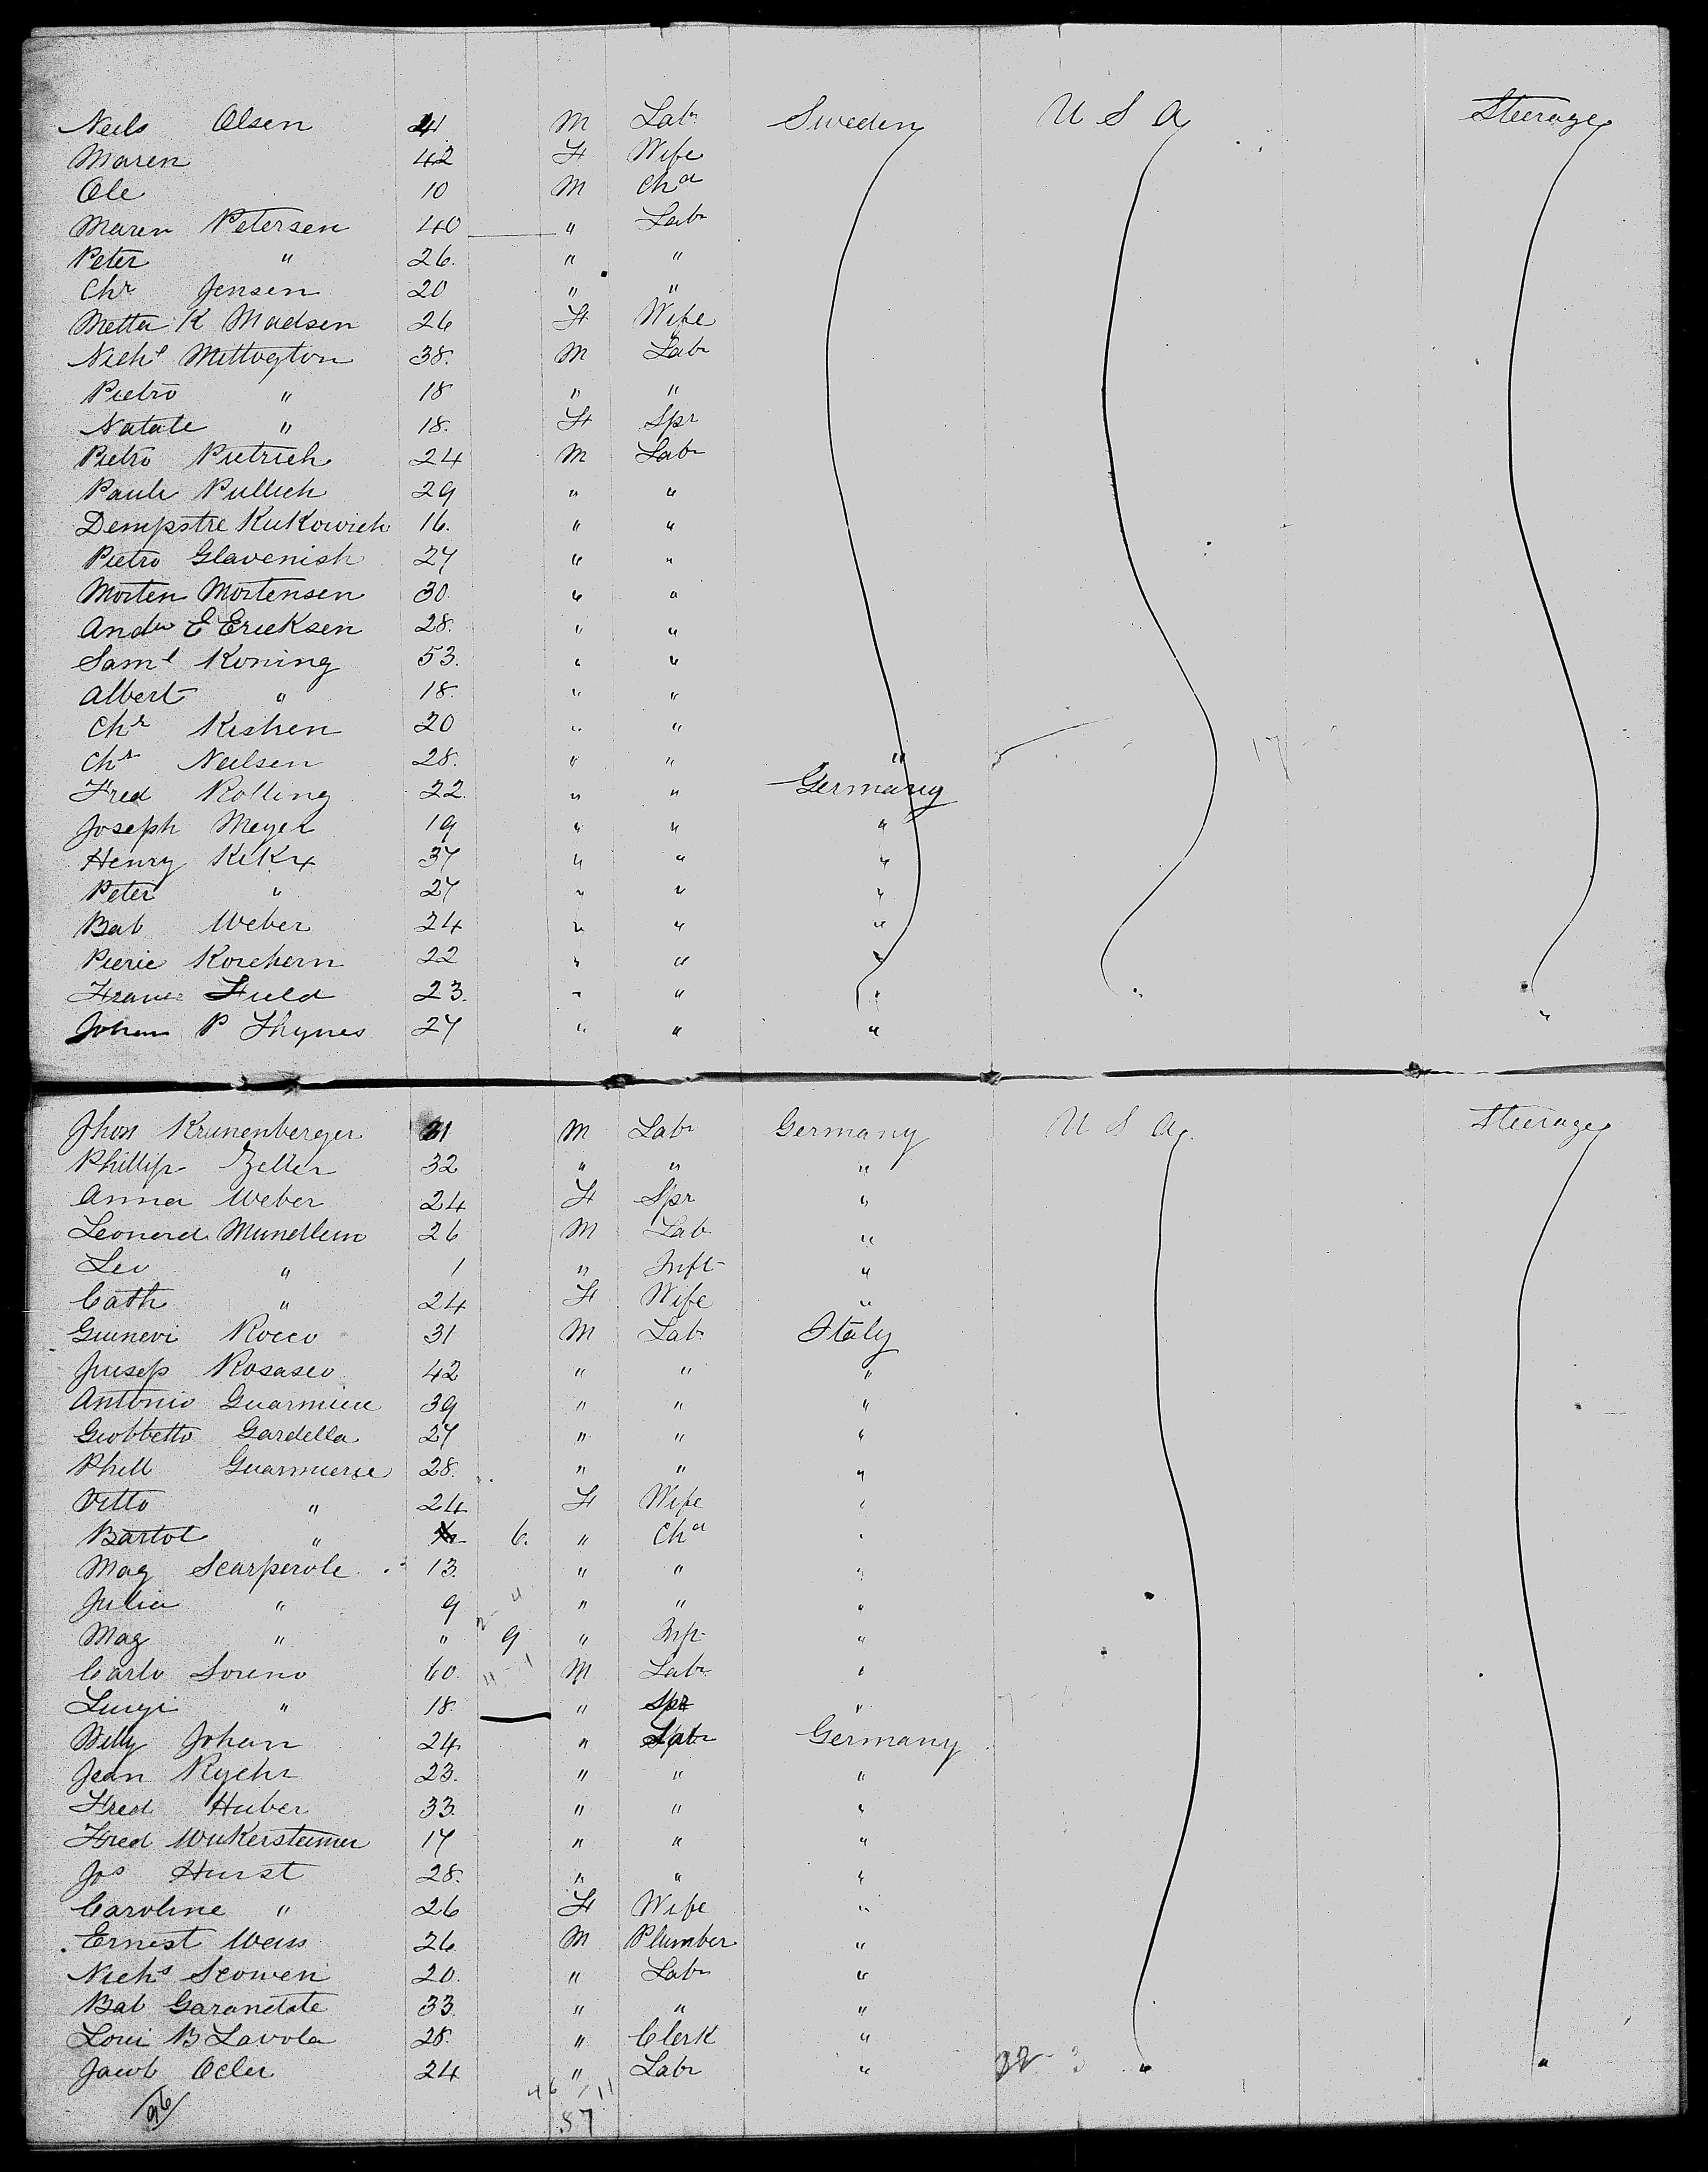 Neils Olsen 41 M Labr Sweden U S A Steerage
Maren 42 F Wife
Ole 10 M Chd
Maren Petersen 40 " Labr
Peter " 26. " "
Chr Jensen 20 " "
Metta K Madsen 26 F Wife
Nichs Mittogton 38. M Labr
Pietro " 18 " "
Natale " 18. F Spr
Pietro Pietrich 24 M Labr
Paule Pullich 29 " "
Dempstre Kukowich 16. " "
Pietro Glavenish 27 " "
Morten Mortensen 30. " "
Andw E Ericksen 28. " "
Saml Koning 53. " "
Albert " 18. " "
Chr Kishen 20 " "
Chr Neilsen 28. " " "
Fred Rolling 22. " " Germany
Joseph Meyer 19 " " "
Henry 37 " " "
Peter " 27 " " "
Bab Weber 24 " " "
Pierie Korchern 22 " " "
Franc Huld 23. " " " "
Johan P Thynes 27 " " " "
Jhon Krunenberger 31 M Labr Germany U S A. Steerage
Phillip Zeller 32 " " "
Anna Weber 24 F Spr "
Leonerd Mundlein 26 M Lab "
Leo " 1 " Inft "
Cath " 24 F Wife "
Guinevi Rocco 31 M Labr Italy
Jusep Rosasco 42 " " "
Antonio Guarmiere 39 " " "
Giobbetto Gardella 27 " " "
Phill Guarmiere 28. " " "
Vitto " 24 F Wife "
Bartol " 6. " Chd "
Mag Scarperole 13. " " "
Julia " 9 " " "
Mag " " 9 " Inft "
Carlo Soreno 60. M Labr "
Luigi " 18. " Spr "
Willy Johan 24 " Labr Germany
Jean Rychr 23. " " "
Fred Huber 33. " " "
Fred Wukersteimer 17 " " "
Jos Hurst 28. " " "
Caroline " 26 F Wife "
Ernest Weiss 26 M Plumber "
Nichs Scowen 20. " Labr "
Bab Garandate 33. " " "
Loui B Lavola 28. " Clerk "
Jacob Ocler 24 " Labr " " "
96 46 / 11
57